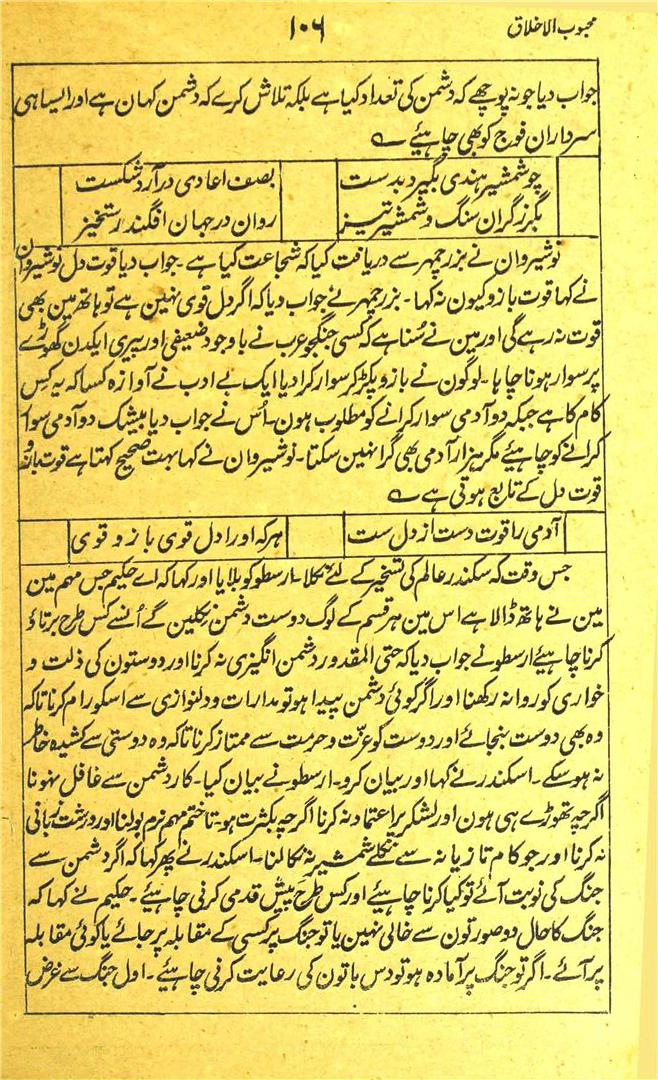 محبوب الاخلاق
۱۰۶
جواب دیا جو نہ پوچھے کہ دشمن کی تعداد کیا ہے بلکہ تلاش کرے کہ دشمن کہان ہے اور ایسا ہی
سرداران فوج کو بھی چاہیئے ؎
چو شمشیر ہندی بگیرد بدست
بصف اعادی در آرد شکست
بگرز گران سنگ و شمشیر تیز
روان در جہان افگند رستخیز
نوشیروان نے بزرچمہر سے دریافت کیا کہ شجاعت کیا ہے ۔ جواب دیا قوت دل نوشیروان
نے کہا قوت بازو کیون نہ کہا ۔ بزرچمہر نے جواب دیا کہ اگر دل قوی نہین ہے تو ہاتھ مین بھی
قوت نہ رہے گی اور مین نے سُنا ہے کہ کسی جنگجو عرب نے باوجود ضعیفی اور پیری ایکدن گھوڑے
پر سوار ہونا چاہا ۔ لوگون نے بازو پکڑ کر سوار کرا دیا ایک بے ادب نے آوازہ کسا کہ یہ کِس
کام کا ہے جبکہ دو آدمی سوار کرانے کو مطلوب ہون ۔ اُس نے جواب دیا بیشک دو آدمی سوار
کرانے کو چاہیئے مگر ہزار آدمی بھی گرا نہین سکتا ۔ نوشیروان نے کہا بہت صحیح کہتا ہے قوت بازو
قوت دل کے تابع ہوتی ہے ؎
آدمی را قوت دست از دل ست
ہر کہ اورا دل قوی بازو قوی
جس وقت کہ سکندر عالم کی تسخیر کے لئے نکلا ۔ ارسطو کو بلایا اور کہا کہ اے حکیم جس مہم مین
مین نے ہاتھ ڈالا ہے اس مین ہر قسم کے لوگ دوست دشمن نکلین گے اُنسے کس طرح برتاؤ
کرنا چاہیئے ارسطو نے جواب دیا کہ حتی المقدور دشمن انگیزی نہ کرنا اور دوستون کی ذلت و
خواری کو روا نہ رکھنا اور اگر کوئی دشمن پیدا ہو تو مدارات و دلنوازی سے اسکو رام کرنا تاکہ
وہ بھی دوست بنجائے اور دوست کو عزّت و حرمت سے ممتاز کرنا تاکہ وہ دوستی سے کشیدہ خاطر
نہ ہو سکے ۔ اسکندر نے کہا اور بیان کرو ۔ ارسطو نے بیان کیا ۔ کار دشمن سے غافل نہونا
اگرچہ تھوڑے ہی ہون اور لشکر پر اعتماد نہ کرنا اگرچہ بکثرت ہو ۔ تا ختم مہم نرم بولنا اور درشت زبانی
نہ کرنا اور جو کام تازیانہ سے نکلے شمشیر نہ نکالنا ۔ اسکندر نے پھر کہا کہ اگر دشمن سے
جنگ کی نوبت آئے تو کیا کرنا چاہیئے اور کس طرح پیش قدمی کرنی چاہیئے ۔ حکیم نے کہا کہ
جنگ کا حال دو صورتون سے خالی نہین یا تو جنگ پر کسی کے مقابلہ پر جائے یا کوئی مقابلہ
پر آئے ۔ اگر تو جنگ پر آمادہ ہو تو دس باتون کی رعایت کرنی چاہیئے ۔ اول جنگ سے غرض